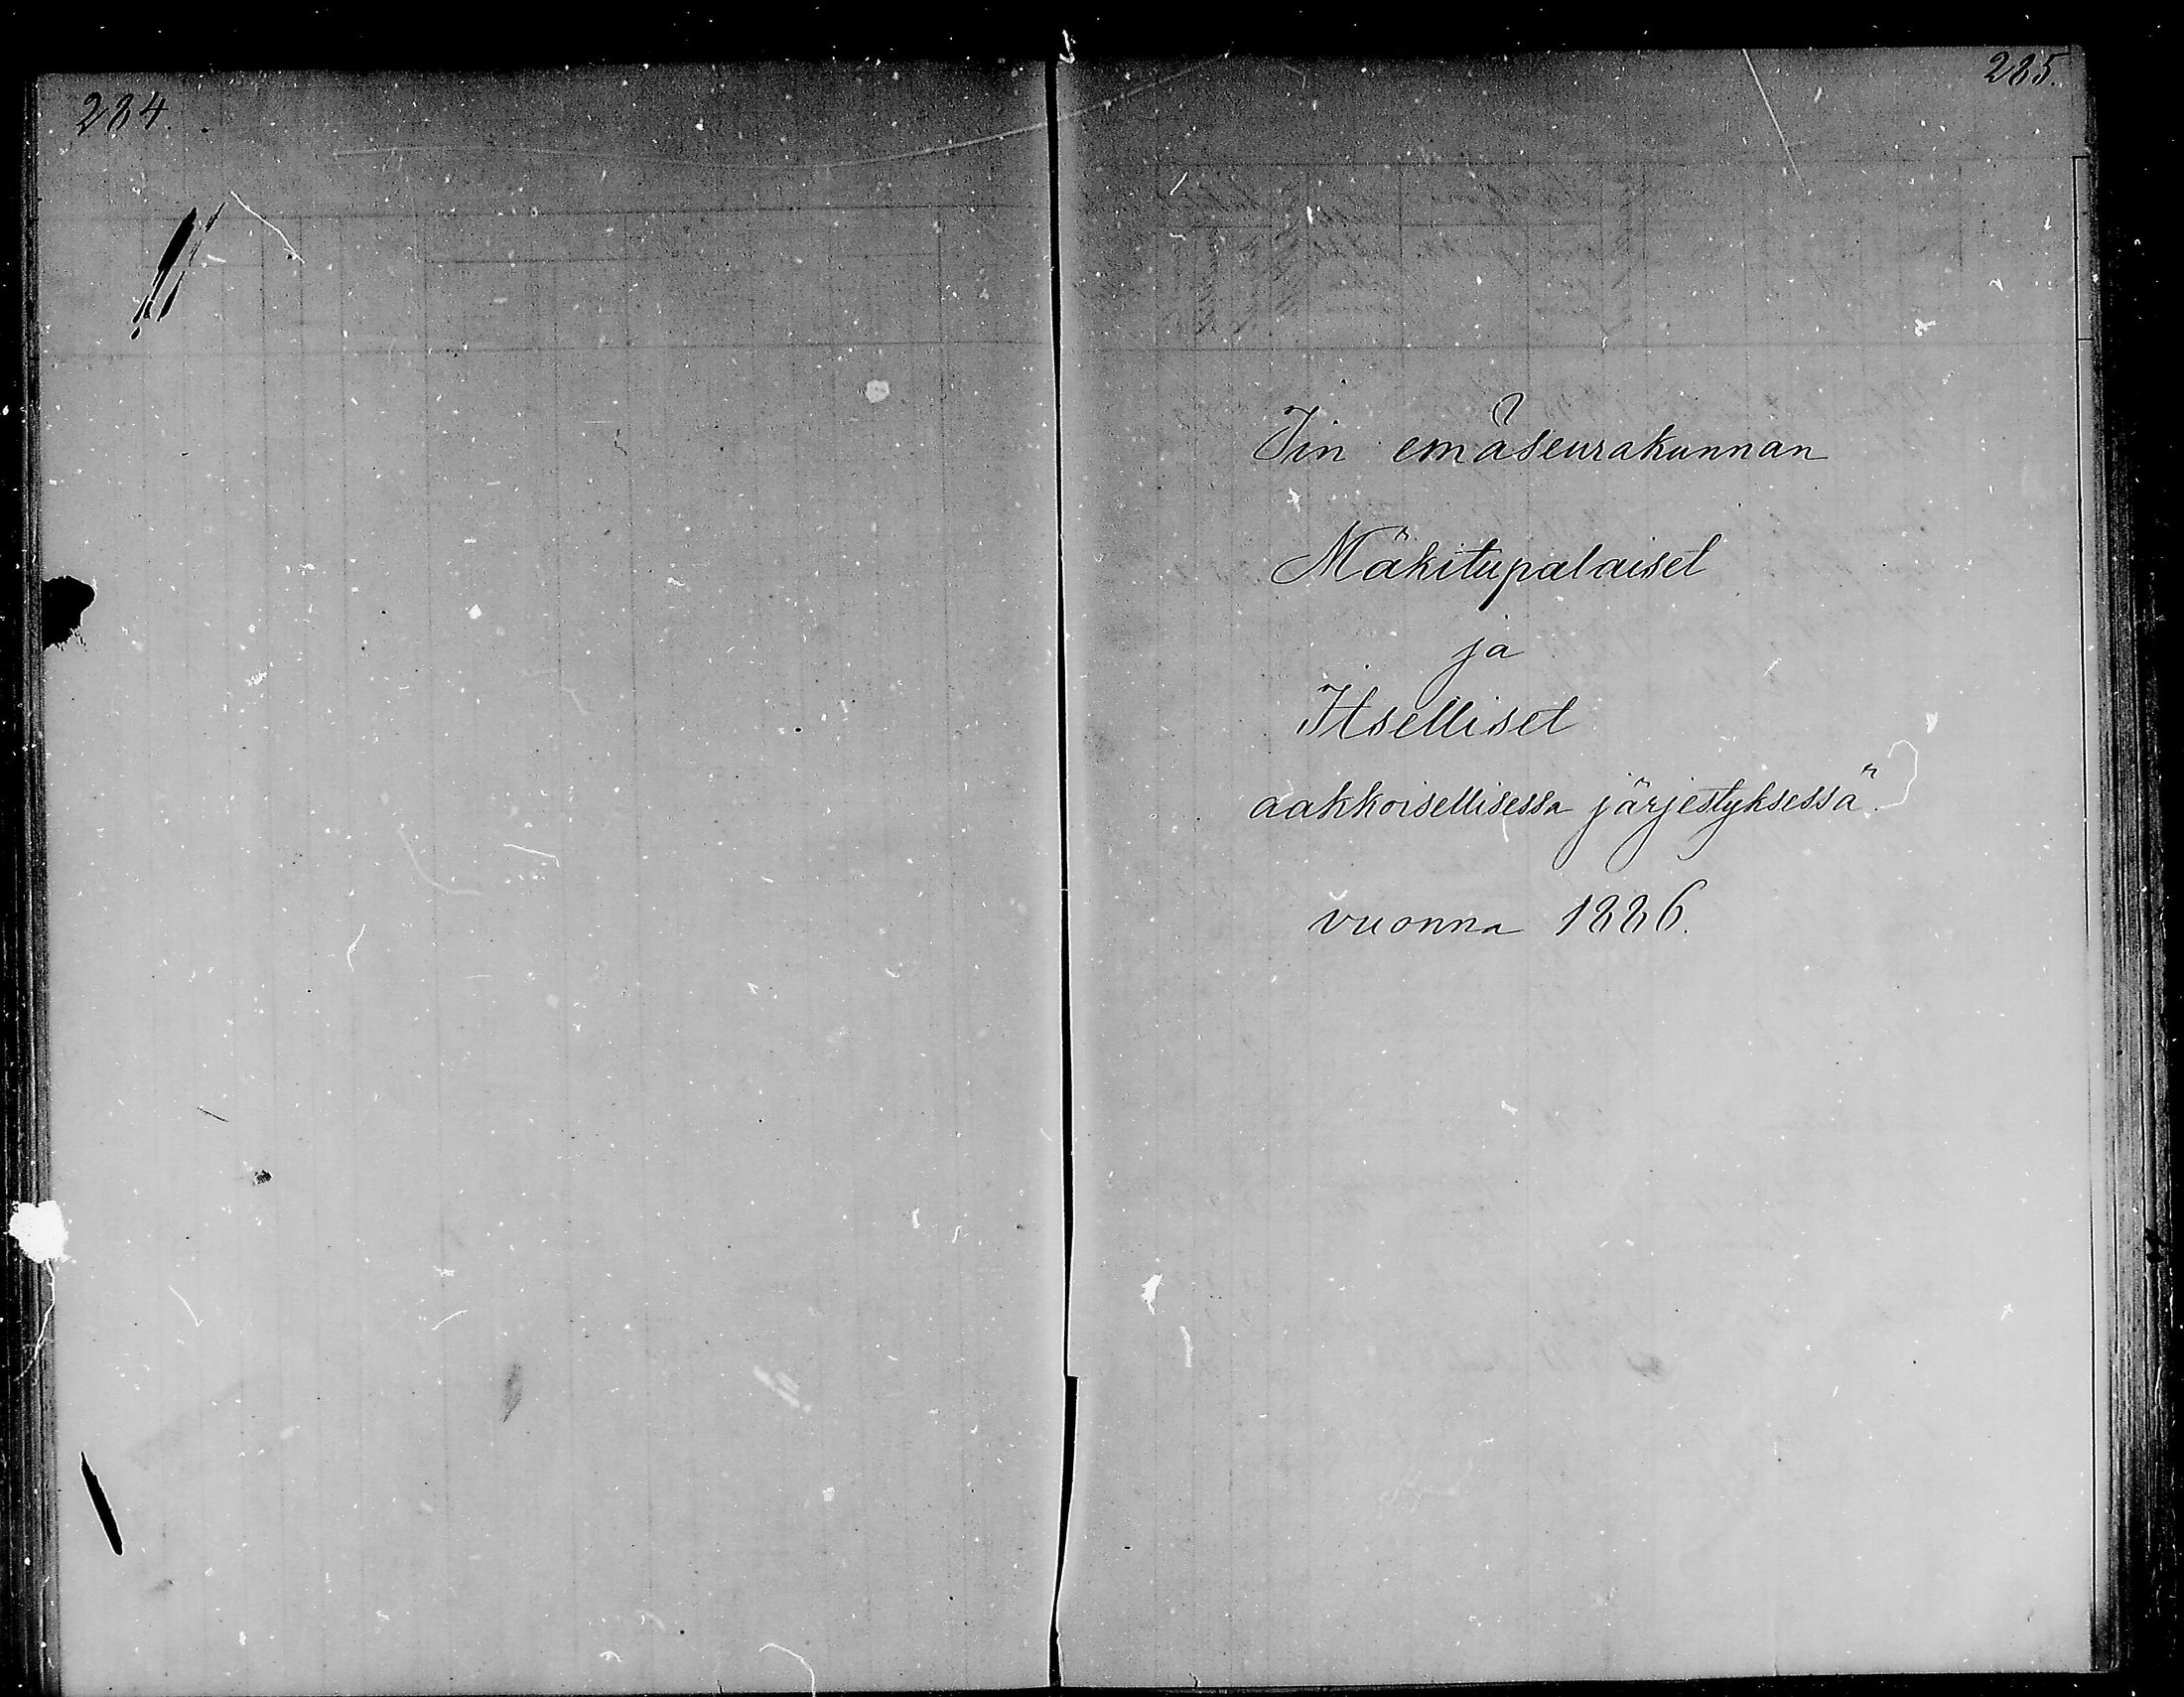 284.
285.
Iin emäseurakunnan
Mäkitupalaiset
ja
Itselliset
aakkoisellisessa järjestyksessä.
vuonna 1886.